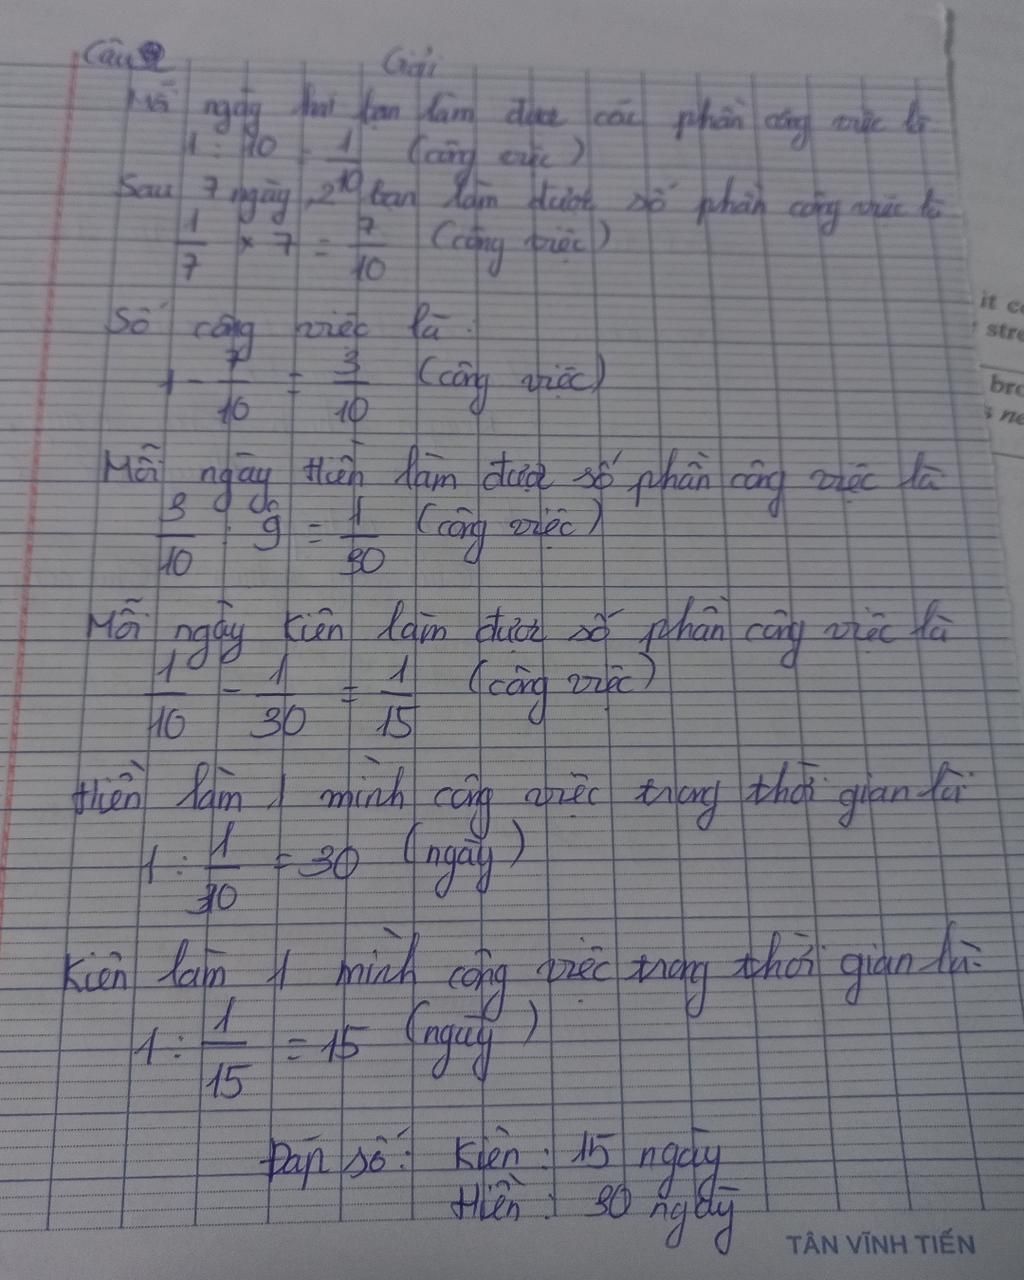 Câu 2 Giải
Mỗi ngày hai bạn làm được các phần công việc là
1 : 10 = 1/10 (công việc)
Sau 7 ngày, 2 bạn làm được số phần công việc là
1/7 × 7 = 7/10 (công việc)
Số công việc là:
1 - 7/10 = 3/10 (công việc)
Mỗi ngày Hiền làm được số phần công việc là
3/10 : 9 = 1/30 (công việc)
Mỗi ngày Kiên làm được số phần công việc là
1/10 - 1/30 = 1/15 (công việc)
Hiền làm 1 mình công việc trong thời gian là
1 : 1/30 = 30 (ngày)
Kiên làm 1 mình công việc trong thời gian là:
1 : 1/15 = 15 (ngày)
Đáp số: Kiên: 15 ngày
Hiền: 30 ngày
TÂN VĨNH TIẾN
it
bro